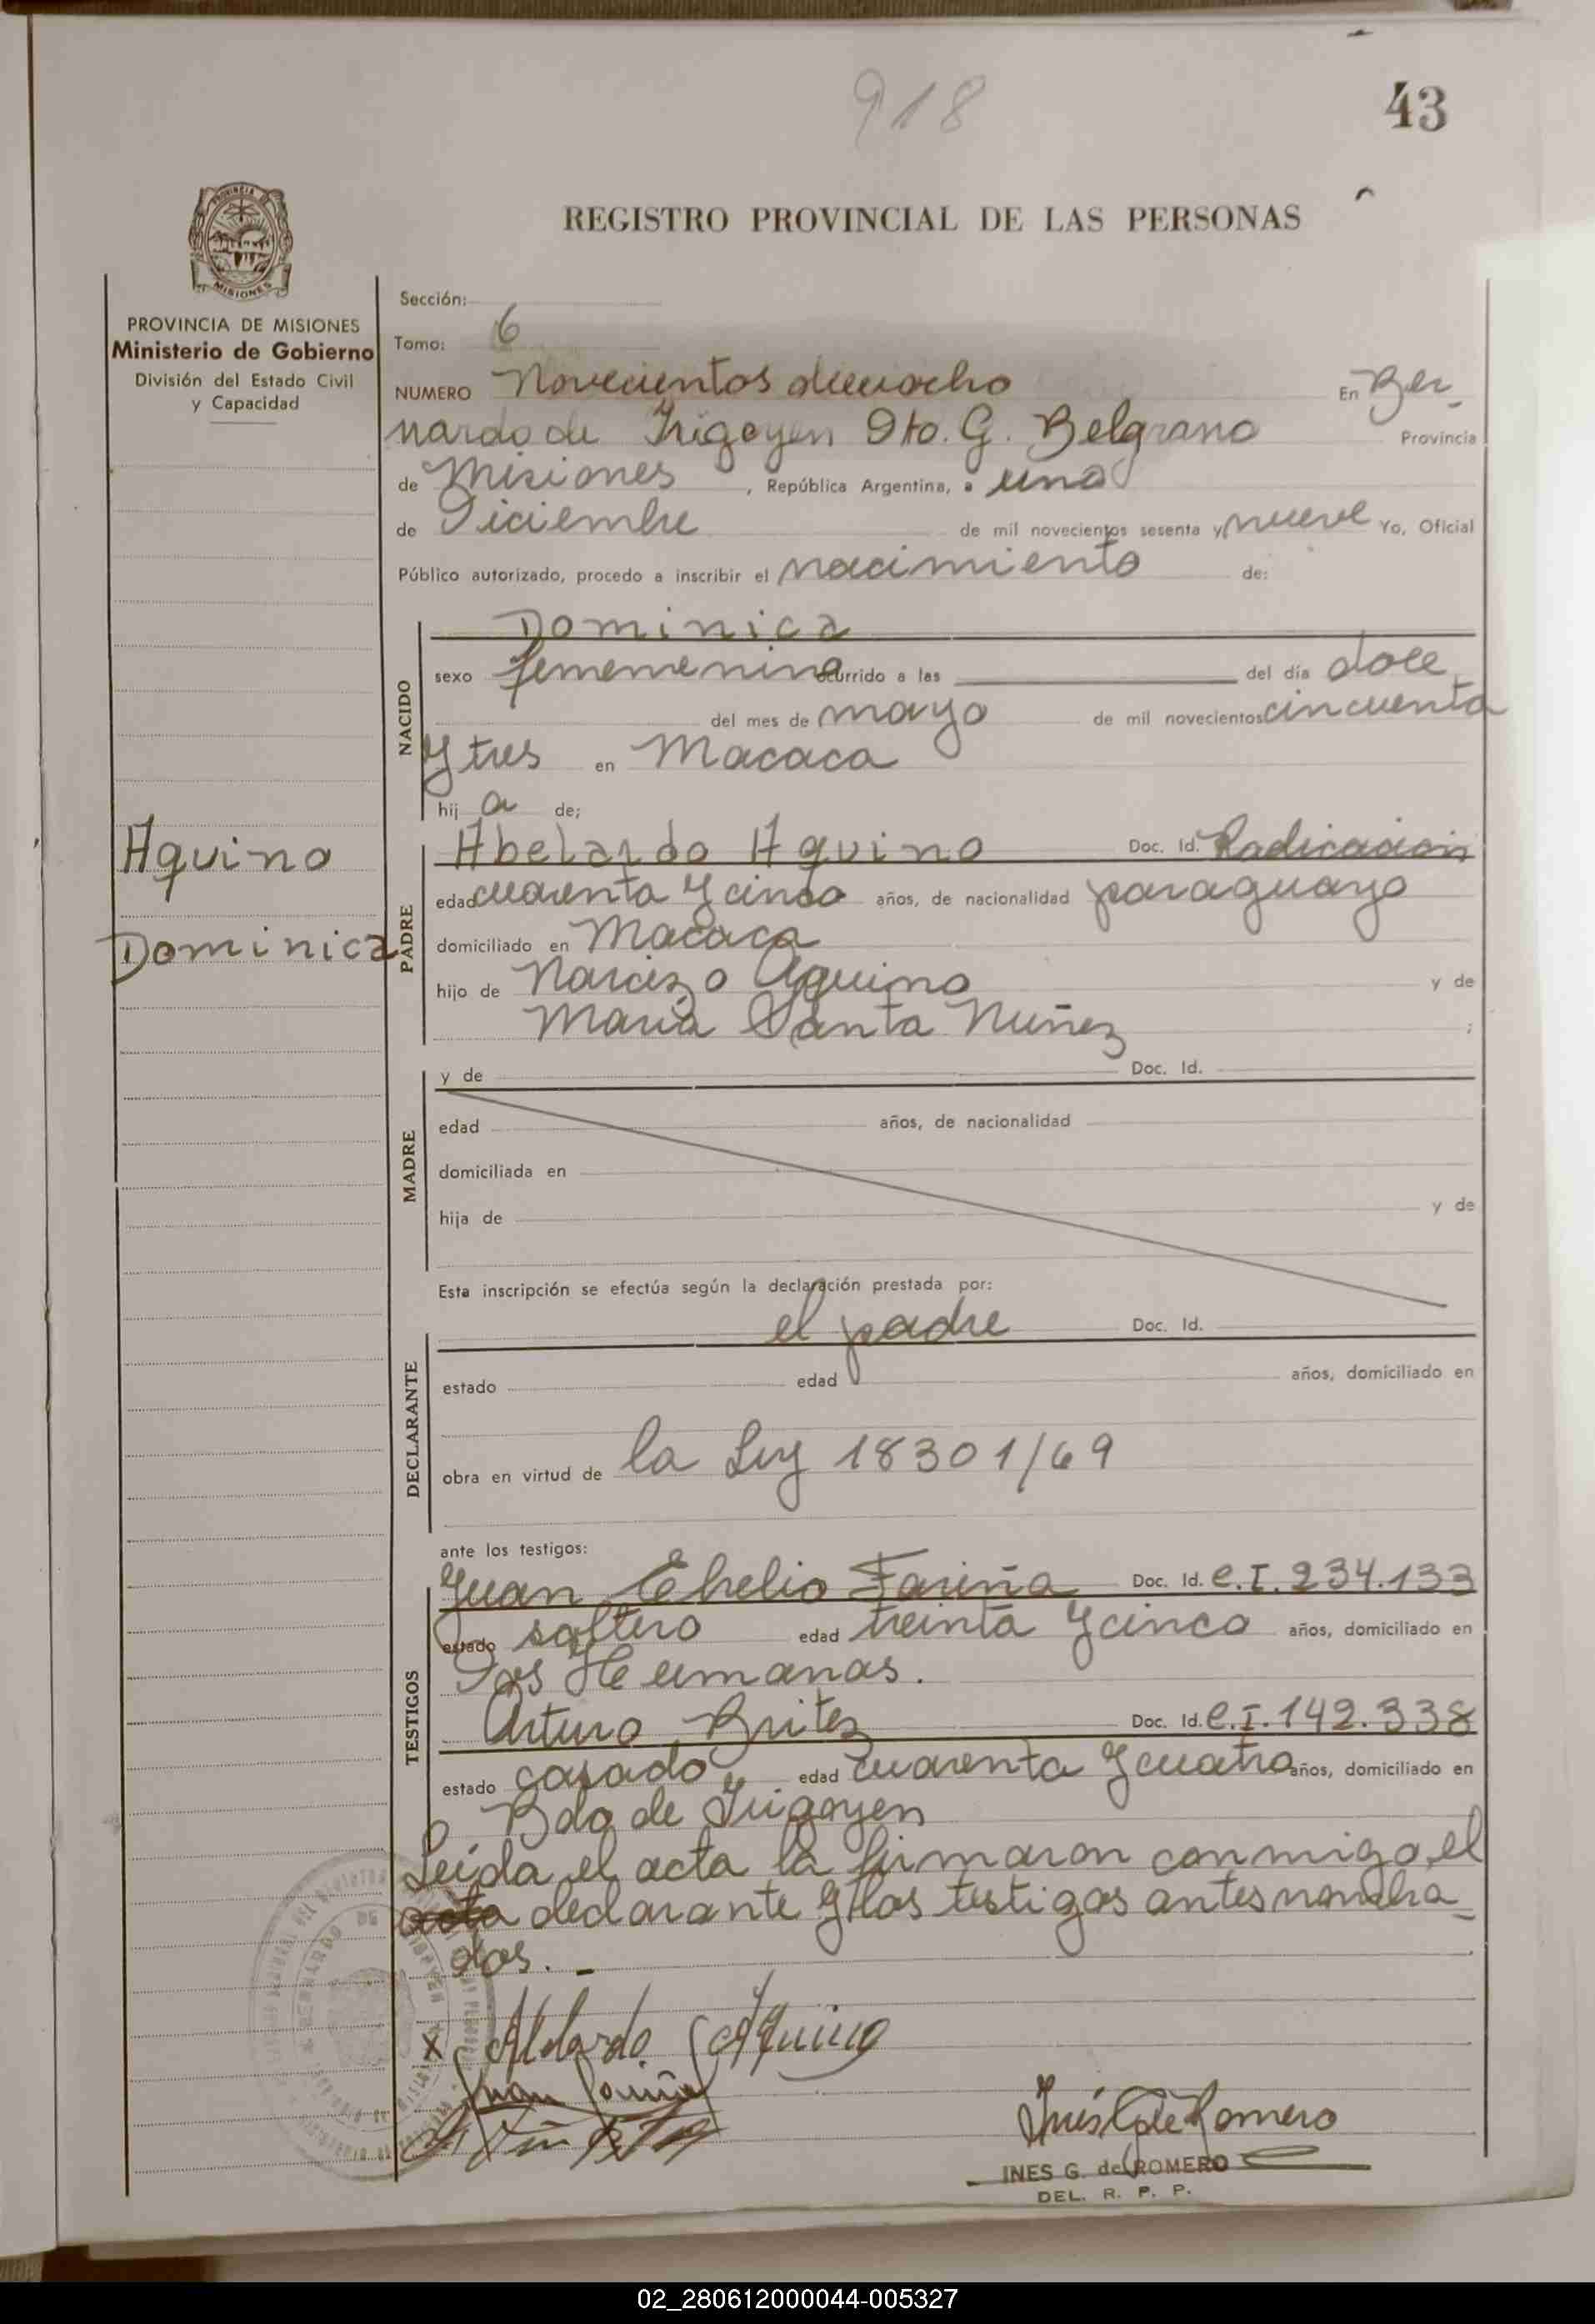 918
43
REGISTRO PROVINCIAL DE LAS PERSONAS
PROVINCIA DE MISIONES
Ministerio de Gobierno
División del Estado Civil
y Capacidad
Sección:
Tomo: 6
NUMERO Novecientos dieciocho En Ber-
nardo de Irigoyen Dto. G. Belgrano Provincia
de Misiones, República Argentina, a uno
de Diciembre de mil novecientos sesenta y nueve Yo, Oficial
Público autorizado, procedo a inscribir el nacimiento de:
NACIDO
Dominica
sexo fememenino ocurrido a las del día doce
del mes de mayo de mil novecientos cincuenta
y tres en Macaca
hij a de;
Aquino
Dominica
PADRE
Abelardo Aquino Doc. Id. Radicación
edad cuarenta y cinco años, de nacionalidad paraguayo
domiciliado en Macaca
hijo de Narcizo Aquino y de
Maria Santa Nuñez ;
MADRE
y de Doc. Id.
edad años, de nacionalidad
domiciliada en
hija de y de
Esta inscripción se efectúa según la declaración prestada por:
DECLARANTE
el padre Doc. Id.
estado edad años, domiciliado en
obra en virtud de la Ley 18301/69
ante los testigos:
TESTIGOS
Juan Ehelio Fariña Doc. Id. C.I. 234.133
estado soltero edad treinta y cinco años, domiciliado en
Dos Hermanas.
Arturo Britez Doc. Id. C.I. 142.338
estado casado edad cuarenta y cuatro años, domiciliado en
Bdo de Irigoyen
Leída el acta la firmaron conmigo, el
declarante y los testigos antes nombra-
dos. -
x Abelardo Aquino
Juan Fariña
Inés G de Romero
INES G. de ROMERO
DEL. R. P. P.
02_280612000044-005327